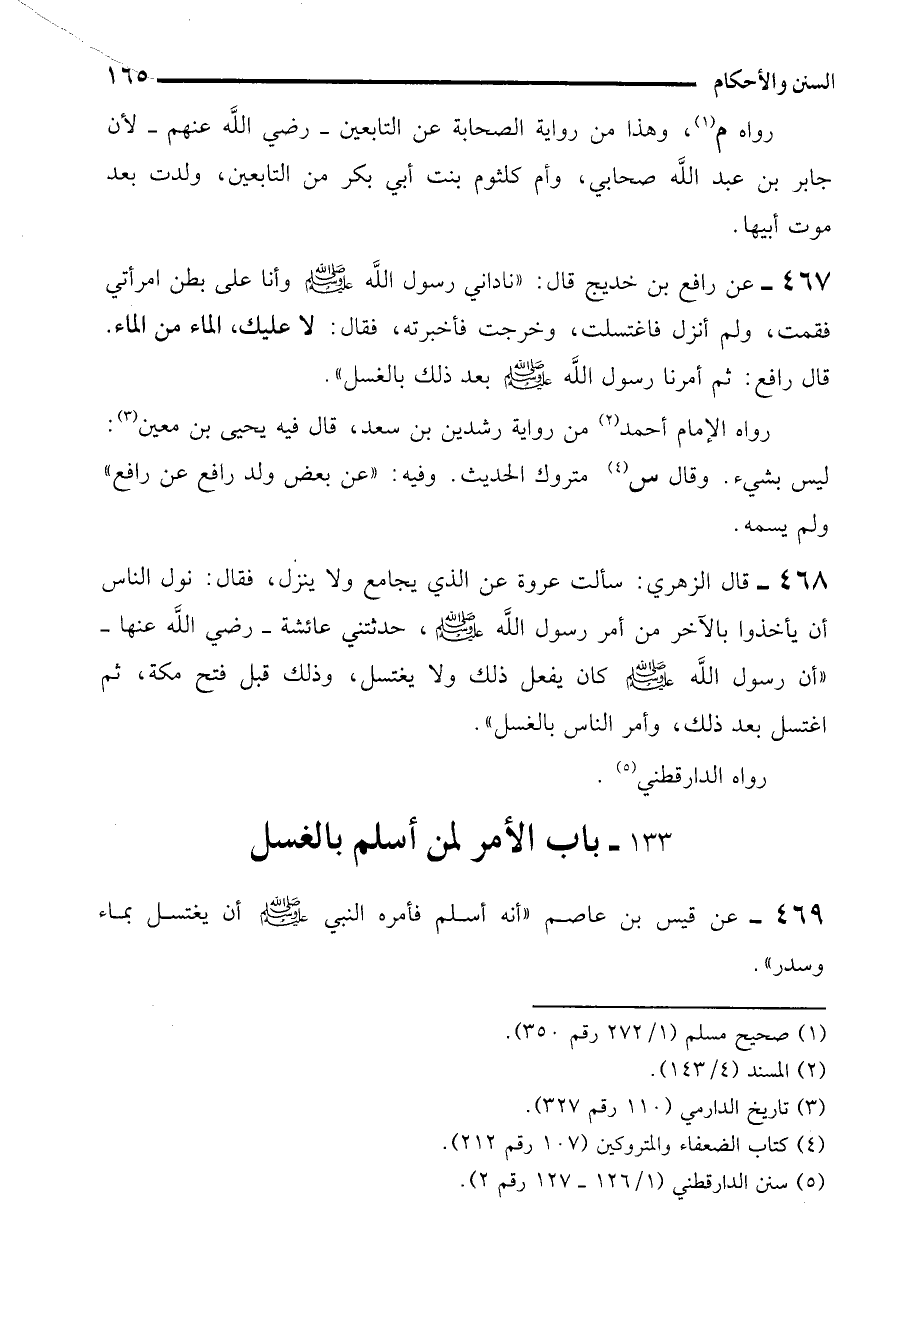 السنن والأحكام ١٦٥
رواه م(١)، وهذا من رواية الصحابة عن التابعين ـ رضي اللَّه عنهم ـ لأن
جابر بن عبد اللَّه صحابي، وأم كلثوم بنت أبي بكر من التابعين، ولدت بعد
موت أبيها.
٤٦٧ ـ عن رافع بن خديج قال: «ناداني رسول اللَّه ﷺ وأنا على بطن امرأتي
فقمت، ولم أنزل فاغتسلت، وخرجت فأخبرته، فقال: لا عليك، الماء من الماء.
قال رافع: ثم أمرنا رسول اللَّه ﷺ بعد ذلك بالغسل».
رواه الإمام أحمد(٢) من رواية رشدين بن سعد، قال فيه يحيى بن معين(٣):
ليس بشيء. وقال س(٤) متروك الحديث. وفيه: «عن بعض ولد رافع عن رافع»
ولم يسمه.
٤٦٨ ـ قال الزهري: سألت عروة عن الذي يجامع ولا ينزل، فقال: نول الناس
أن يأخذوا بالآخر من أمر رسول اللَّه ﷺ، حدثتني عائشة ـ رضي اللَّه عنها ـ
«أن رسول اللَّه ﷺ كان يفعل ذلك ولا يغتسل، وذلك قبل فتح مكة، ثم
اغتسل بعد ذلك، وأمر الناس بالغسل».
رواه الدارقطني(٥) .
١٣٣ ـ باب الأمر لمن أسلم بالغسل
٤٦٩ ـ عن قيس بن عاصم «أنه أسلم فأمره النبي ﷺ أن يغتسل بماء
وسدر».
(١) صحيح مسلم (١/ ٢٧٢ رقم ٣٥٠).
(٢) المسند (٤/ ١٤٣).
(٣) تاريخ الدارمي (١١٠ رقم ٣٢٧).
(٤) كتاب الضعفاء والمتروكين (١٠٧ رقم ٢١٢).
(٥) سنن الدارقطني (١/ ١٢٦ ـ ١٢٧ رقم ٢).